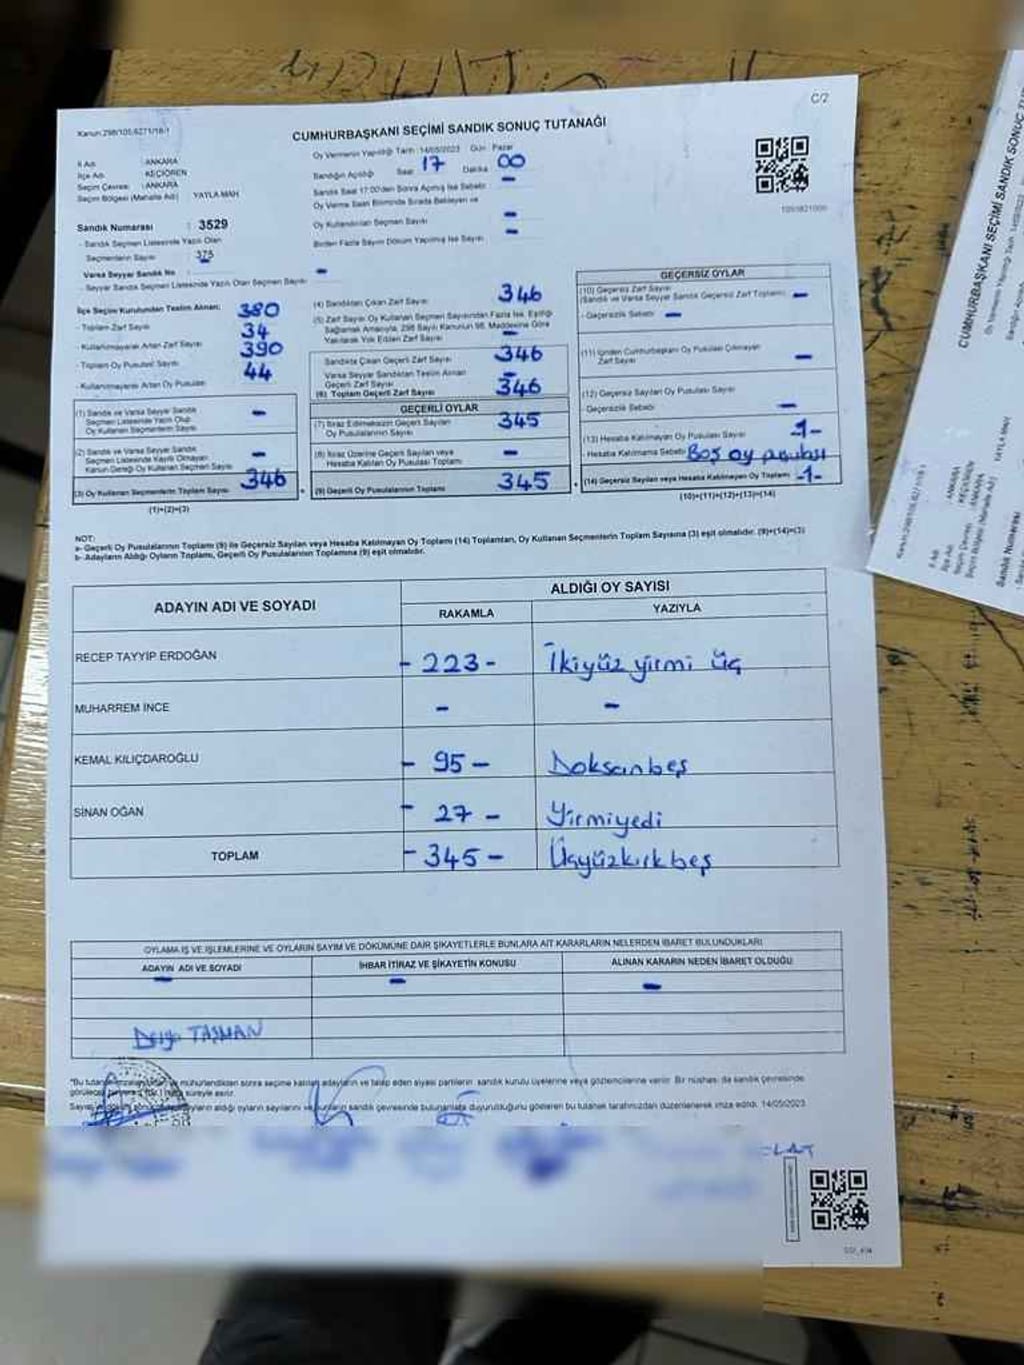 C/2
Kanun:298/105,6271/18-1
CUMHURBAŞKANI SEÇİMİ SANDIK SONUÇ TUTANAĞI
İl Adı : ANKARA
İlçe Adı : KEÇİÖREN
Seçim Çevresi : ANKARA
Seçim Bölgesi (Mahalle Adı) YAYLA MAH
Oy Vermenin Yapıldığı Tarih : 14/05/2023 Gün : Pazar
Sandığın Açıldığı Saat 17 Dakika 00
Sandık Saat 17:00'den Sonra Açılmış İse Sebebi -
Oy Verme Saati Bitiminde Sırada Bekleyen ve
Oy Kullandırılan Seçmen Sayısı -
Birden Fazla Sayım Döküm Yapılmış İse Sayısı -
Sandık Numarası : 3529
- Sandık Seçmen Listesinde Yazılı Olan
Seçmenlerin Sayısı 375
Varsa Seyyar Sandık No :
- Seyyar Sandık Seçmen Listesinde Yazılı Olan Seçmen Sayısı -
İlçe Seçim Kurulundan Teslim Alınan; 380
- Toplam Zarf Sayısı 34
- Kullanılmayarak Artan Zarf Sayısı 390
- Toplam Oy Pusulası Sayısı 44
- Kullanılmayarak Artan Oy Pusulası
(1) Sandık ve Varsa Seyyar Sandık
Seçmen Listesinde Yazılı Olup
Oy Kullanan Seçmenlerin Sayısı -
(2) Sandık ve Varsa Seyyar Sandık
Seçmen Listesinde Kayıtlı Olmayan
Kanun Gereği Oy Kullanan Seçmen Sayısı -
(3) Oy Kullanan Seçmenlerin Toplam Sayısı 346
(1)+(2)=(3)
(4) Sandıktan Çıkan Zarf Sayısı 346
(5) Zarf Sayısı Oy Kullanan Seçmen Sayısından Fazla İse, Eşitliği
Sağlamak Amacıyla, 298 Sayılı Kanunun 98. Maddesine Göre
Yakılarak Yok Edilen Zarf Sayısı -
Sandıkta Çıkan Geçerli Zarf Sayısı 346
Varsa Seyyar Sandıktan Teslim Alınan
Geçerli Zarf Sayısı -
(6) Toplam Geçerli Zarf Sayısı 346
GEÇERLİ OYLAR
(7) İtiraz Edilmeksizin Geçerli Sayılan
Oy Pusulalarının Sayısı 345
(8) İtiraz Üzerine Geçerli Sayılan veya
Hesaba Katılan Oy Pusulası Toplamı -
(9) Geçerli Oy Pusulalarının Toplamı 345
GEÇERSİZ OYLAR
(10) Geçersiz Zarf Sayısı
(Sandık ve Varsa Seyyar Sandık Geçersiz Zarf Toplamı) -
- Geçersizlik Sebebi -
(11) İçinden Cumhurbaşkanı Oy Pusulası Çıkmayan
Zarf Sayısı -
(12) Geçersiz Sayılan Oy Pusulası Sayısı
- Geçersizlik Sebebi -
(13) Hesaba Katılmayan Oy Pusulası Sayısı -1-
- Hesaba Katılmama Sebebi Boş oy pusulası
(14) Geçersiz Sayılan veya Hesaba Katılmayan Oy Toplamı -1-
(10)+(11)+(12)+(13)=(14)
NOT:
a- Geçerli Oy Pusulalarının Toplamı (9) ile Geçersiz Sayılan veya Hesaba Katılmayan Oy Toplamı (14) Toplamları, Oy Kullanan Seçmenlerin Toplam Sayısına (3) eşit olmalıdır. (9)+(14)=(3)
b- Adayların Aldığı Oyların Toplamı, Geçerli Oy Pusulalarının Toplamına (9) eşit olmalıdır.
ADAYIN ADI VE SOYADI ALDIĞI OY SAYISI
RAKAMLA YAZIYLA
RECEP TAYYIP ERDOĞAN - 223 - İkiyüz yirmi üç
MUHARREM İNCE - -
KEMAL KILIÇDAROĞLU - 95 - Doksanbeş
SİNAN OĞAN - 27 - Yirmiyedi
TOPLAM - 345 - Üçyüzkırkbeş
OYLAMA İŞ VE İŞLEMLERİNE VE OYLARIN SAYIM VE DÖKÜMÜNE DAİR ŞİKAYETLERLE BUNLARA AİT KARARLARIN NELERDEN İBARET BULUNDUKLARI
ADAYIN ADI VE SOYADI İHBAR İTİRAZ VE ŞİKAYETİN KONUSU ALINAN KARARIN NEDEN İBARET OLDUĞU
- - -
TAŞMAN
mühürlendikten sonra seçime katılan adayların ve talep eden siyasi partilerin sandık kurulu üyelerine veya gözlemcilerine verilir. Bir nüshası da sandık çevresinde
süreyle asılır.
oyların aldığı oyların sayılarını ve bunların sandık çevresinde bulunanlara duyurulduğunu gösteren bu tutanak tarafımızdan düzenlenerek imza edildi. 14/05/2023
CUMHURBAŞKANI SEÇİMİ SANDIK SONUÇ